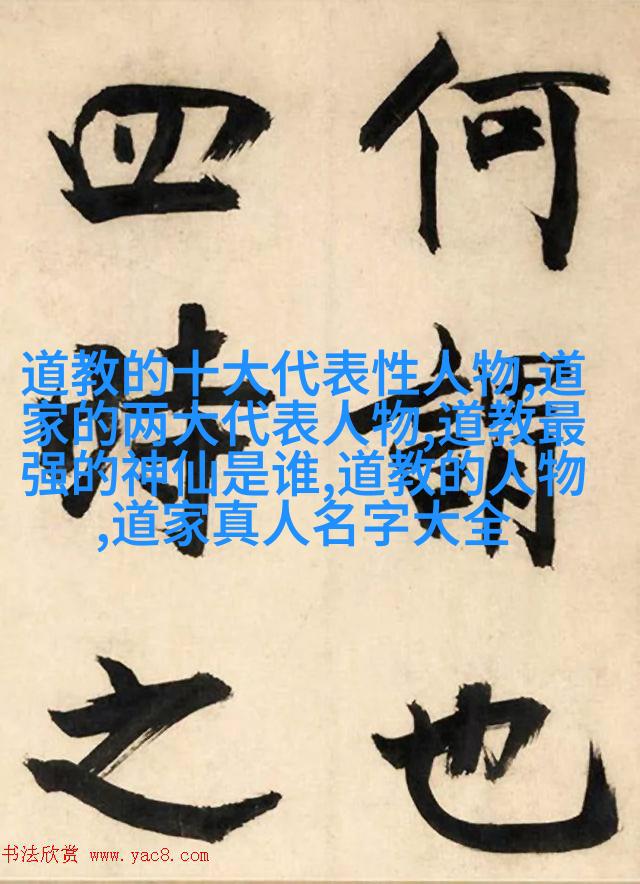 何謂也
四時之
道教的十大代表性人物,道
家的两大代表人物,道教最
强的神仙是谁,道教的人物
,道家真人名字大全
书法欣赏 www.yac8.com